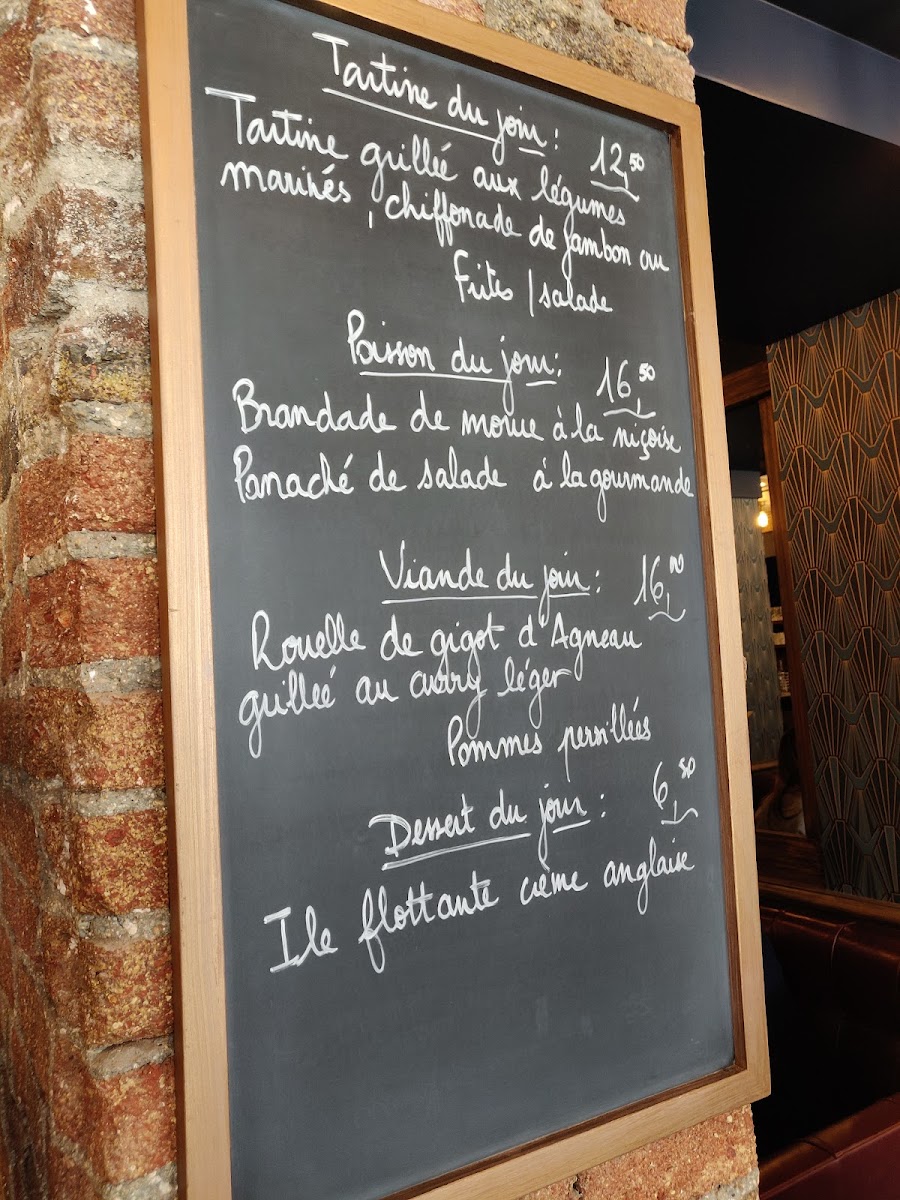 Tartine du jour : 12,50
Tartine grillée aux légumes
marinés, chiffonade de jambon cru
Frites / salade
Poisson du jour : 16,50
Brandade de morue à la niçoise
Panaché de salade à la gourmande
Viande du jour : 16,
Rouelle de gigot d'Agneau
grilleé au curry léger
Pommes persillées
Dessert du jour : 6,50
Ile flottante crème anglaise